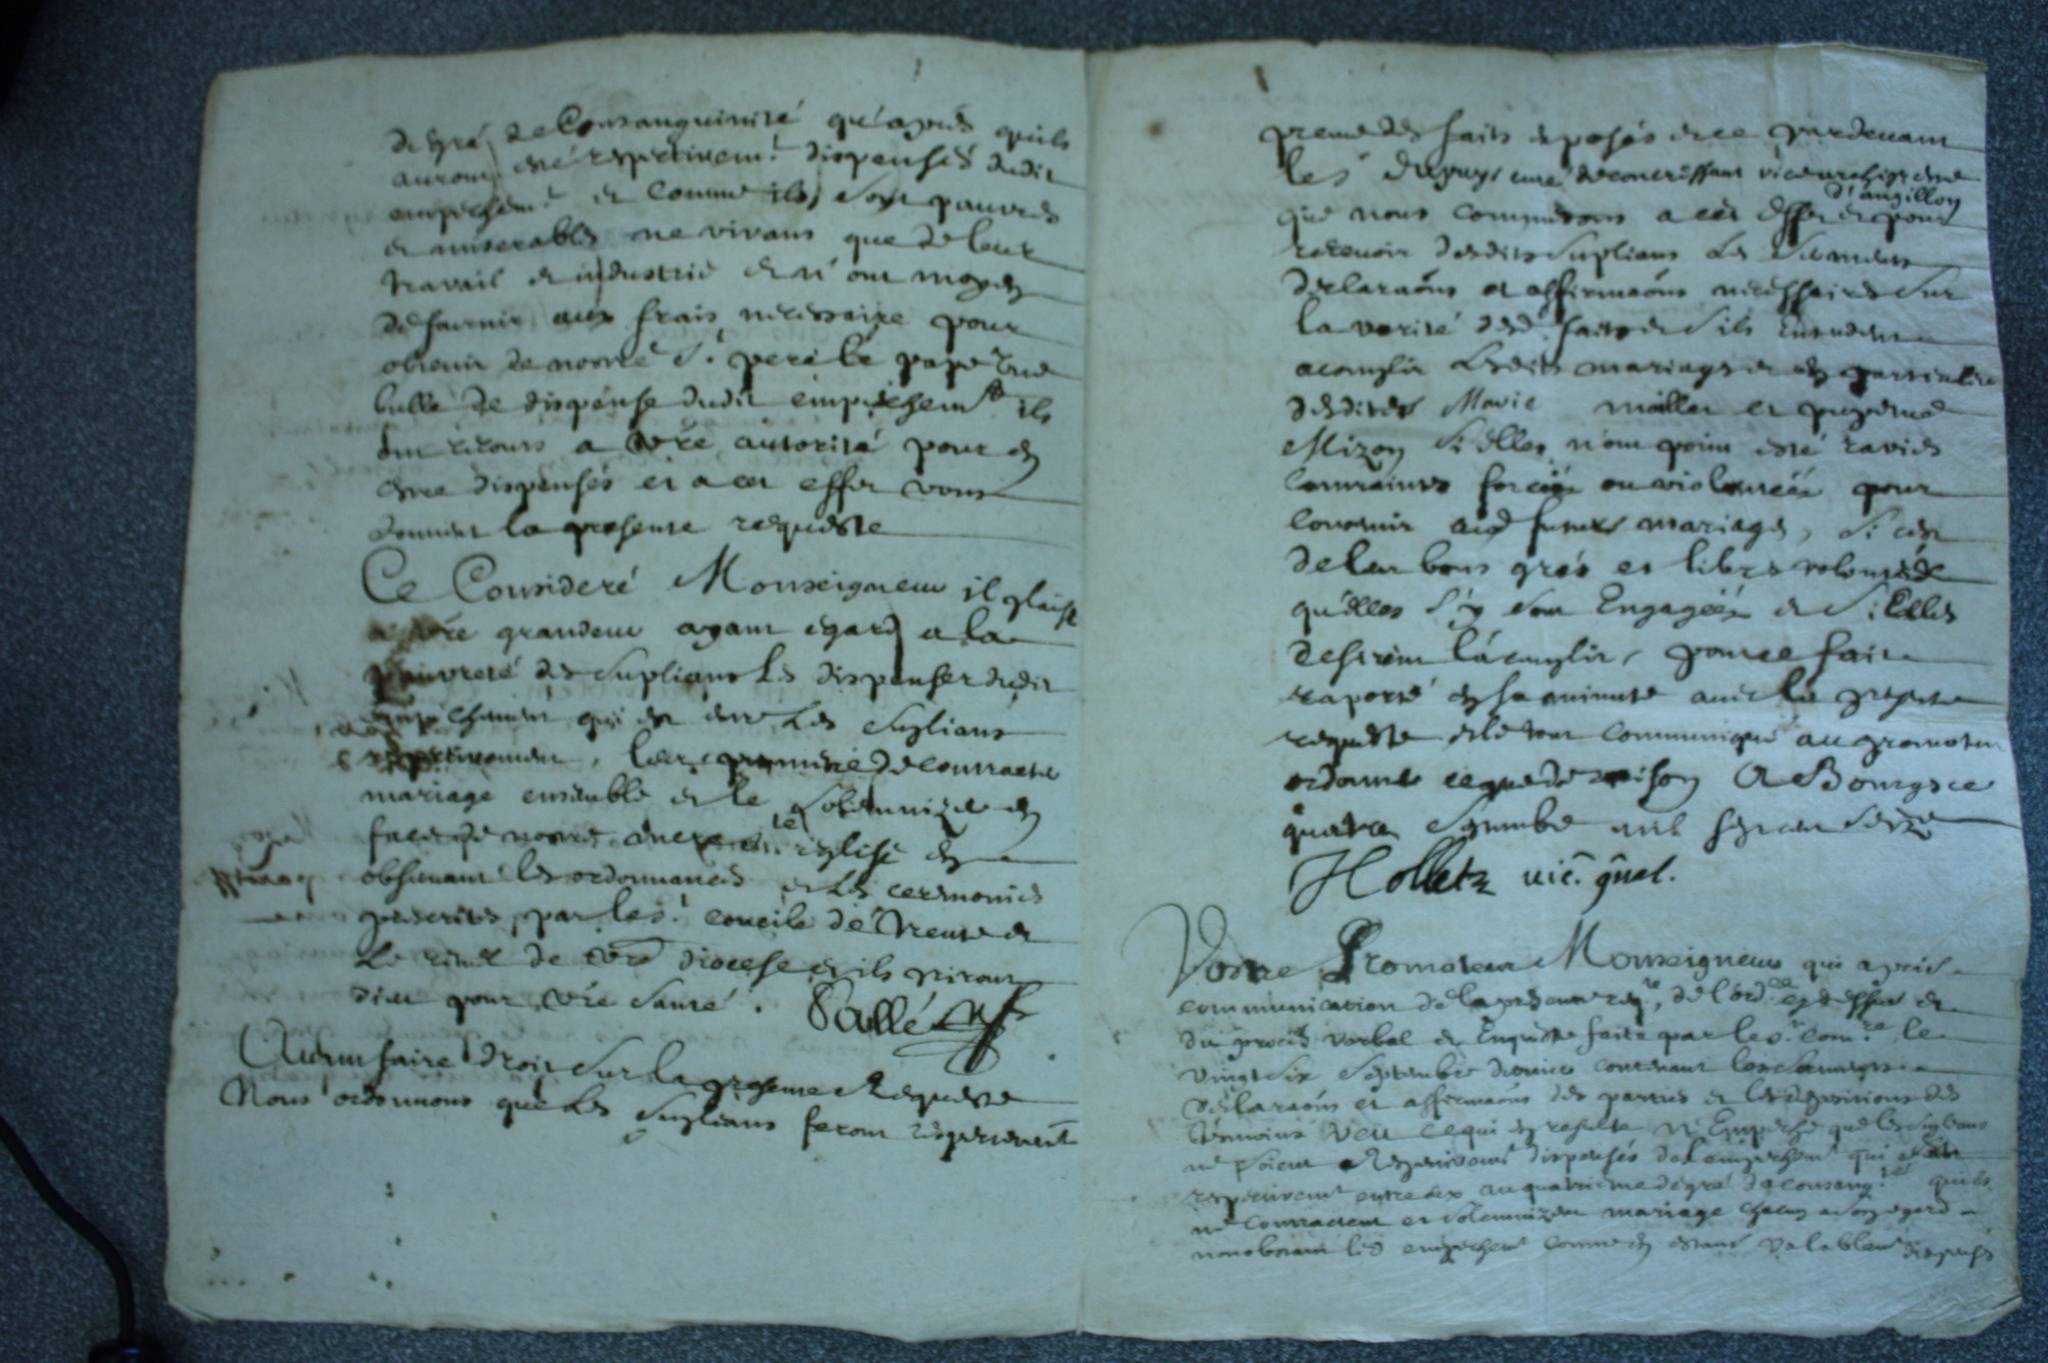 degré de Consanguinité qu'apres quils
auront esté respectivemt dispensés dudit
empechemt et comme ils sont pauvres
et miserables ne vivans que de leur
travail et industrie et n'ont moyen
de fournir aux frais necessaire pour
obtenir de nostre St pere le pape une
bulle de dispense dudit empeschemt ils
ont recours a vre autorité pour en
estre dispensés et a cet effet vous
donnent la presente requeste
Ce Consideré Monseigneur il plaise
a vre grandeur ayant egard a la
pauvreté des suplians les dispenser dudit
empechement qui est entre les suplians
respectivement, leur permettre de contracter
mariage ensemble et le solemnizer en
face de nostre mere ste eglise en
observant les ordonnances et les ceremonies
prescrites par le st concile de trente et
le rituel de vre diocese et ils priront
dieu pour vre santé. Sallé
Avant faire droit sur la presente Requeste
Nous ordonnons que les suplians feront respectivemt
preuve des faits exposés en ce pardevant
le sr Dupuy curé de vice archiprestre
d'angillon
que nous commettons a cet effet et pour
recevoir desdits suplians les sermens
declaraõns et affirmaõns necessaires sur
la verité desd. faits et s'ils entendent
acomplir lesdits mariages et en particulier
desdites Marie millet et
Mizon si elles n'ont point esté ravies
contraintes forcées ou violentées pour
convenir aud futurs mariages, si cest
de leur bons grés et libres volontés
qu'elles s'y sont Engagées et si elles
desirent l'acomplir, pour ce fait
raporté en sa minute avec la presente
requeste et le tout communiqué au promoteur
ordonné ce que de raison A Bourges ce
quatre septembre mil sept cent seize
vic. gñal.
Vostre Promoteur Monseigneur qui a pris
communication de la presente reqte, de l'ordce et
du procés verbal et Enqueste faite par le sr comre le
vingt six septembre dernier contenant les sermens
declaraõns et affirmaõns des parties et les depositions des
temoins veu ce qui en resulte N'Empeche que les suplians
ne soient Respectivemt dispensés de l'empechemt qui est
respectivemt entre eux au quatrieme degré de consangté qu'ils
ne contractent et solemnizent mariage chacun a son egard
nonobstant les empechemt comme en estant valablemt dispensés